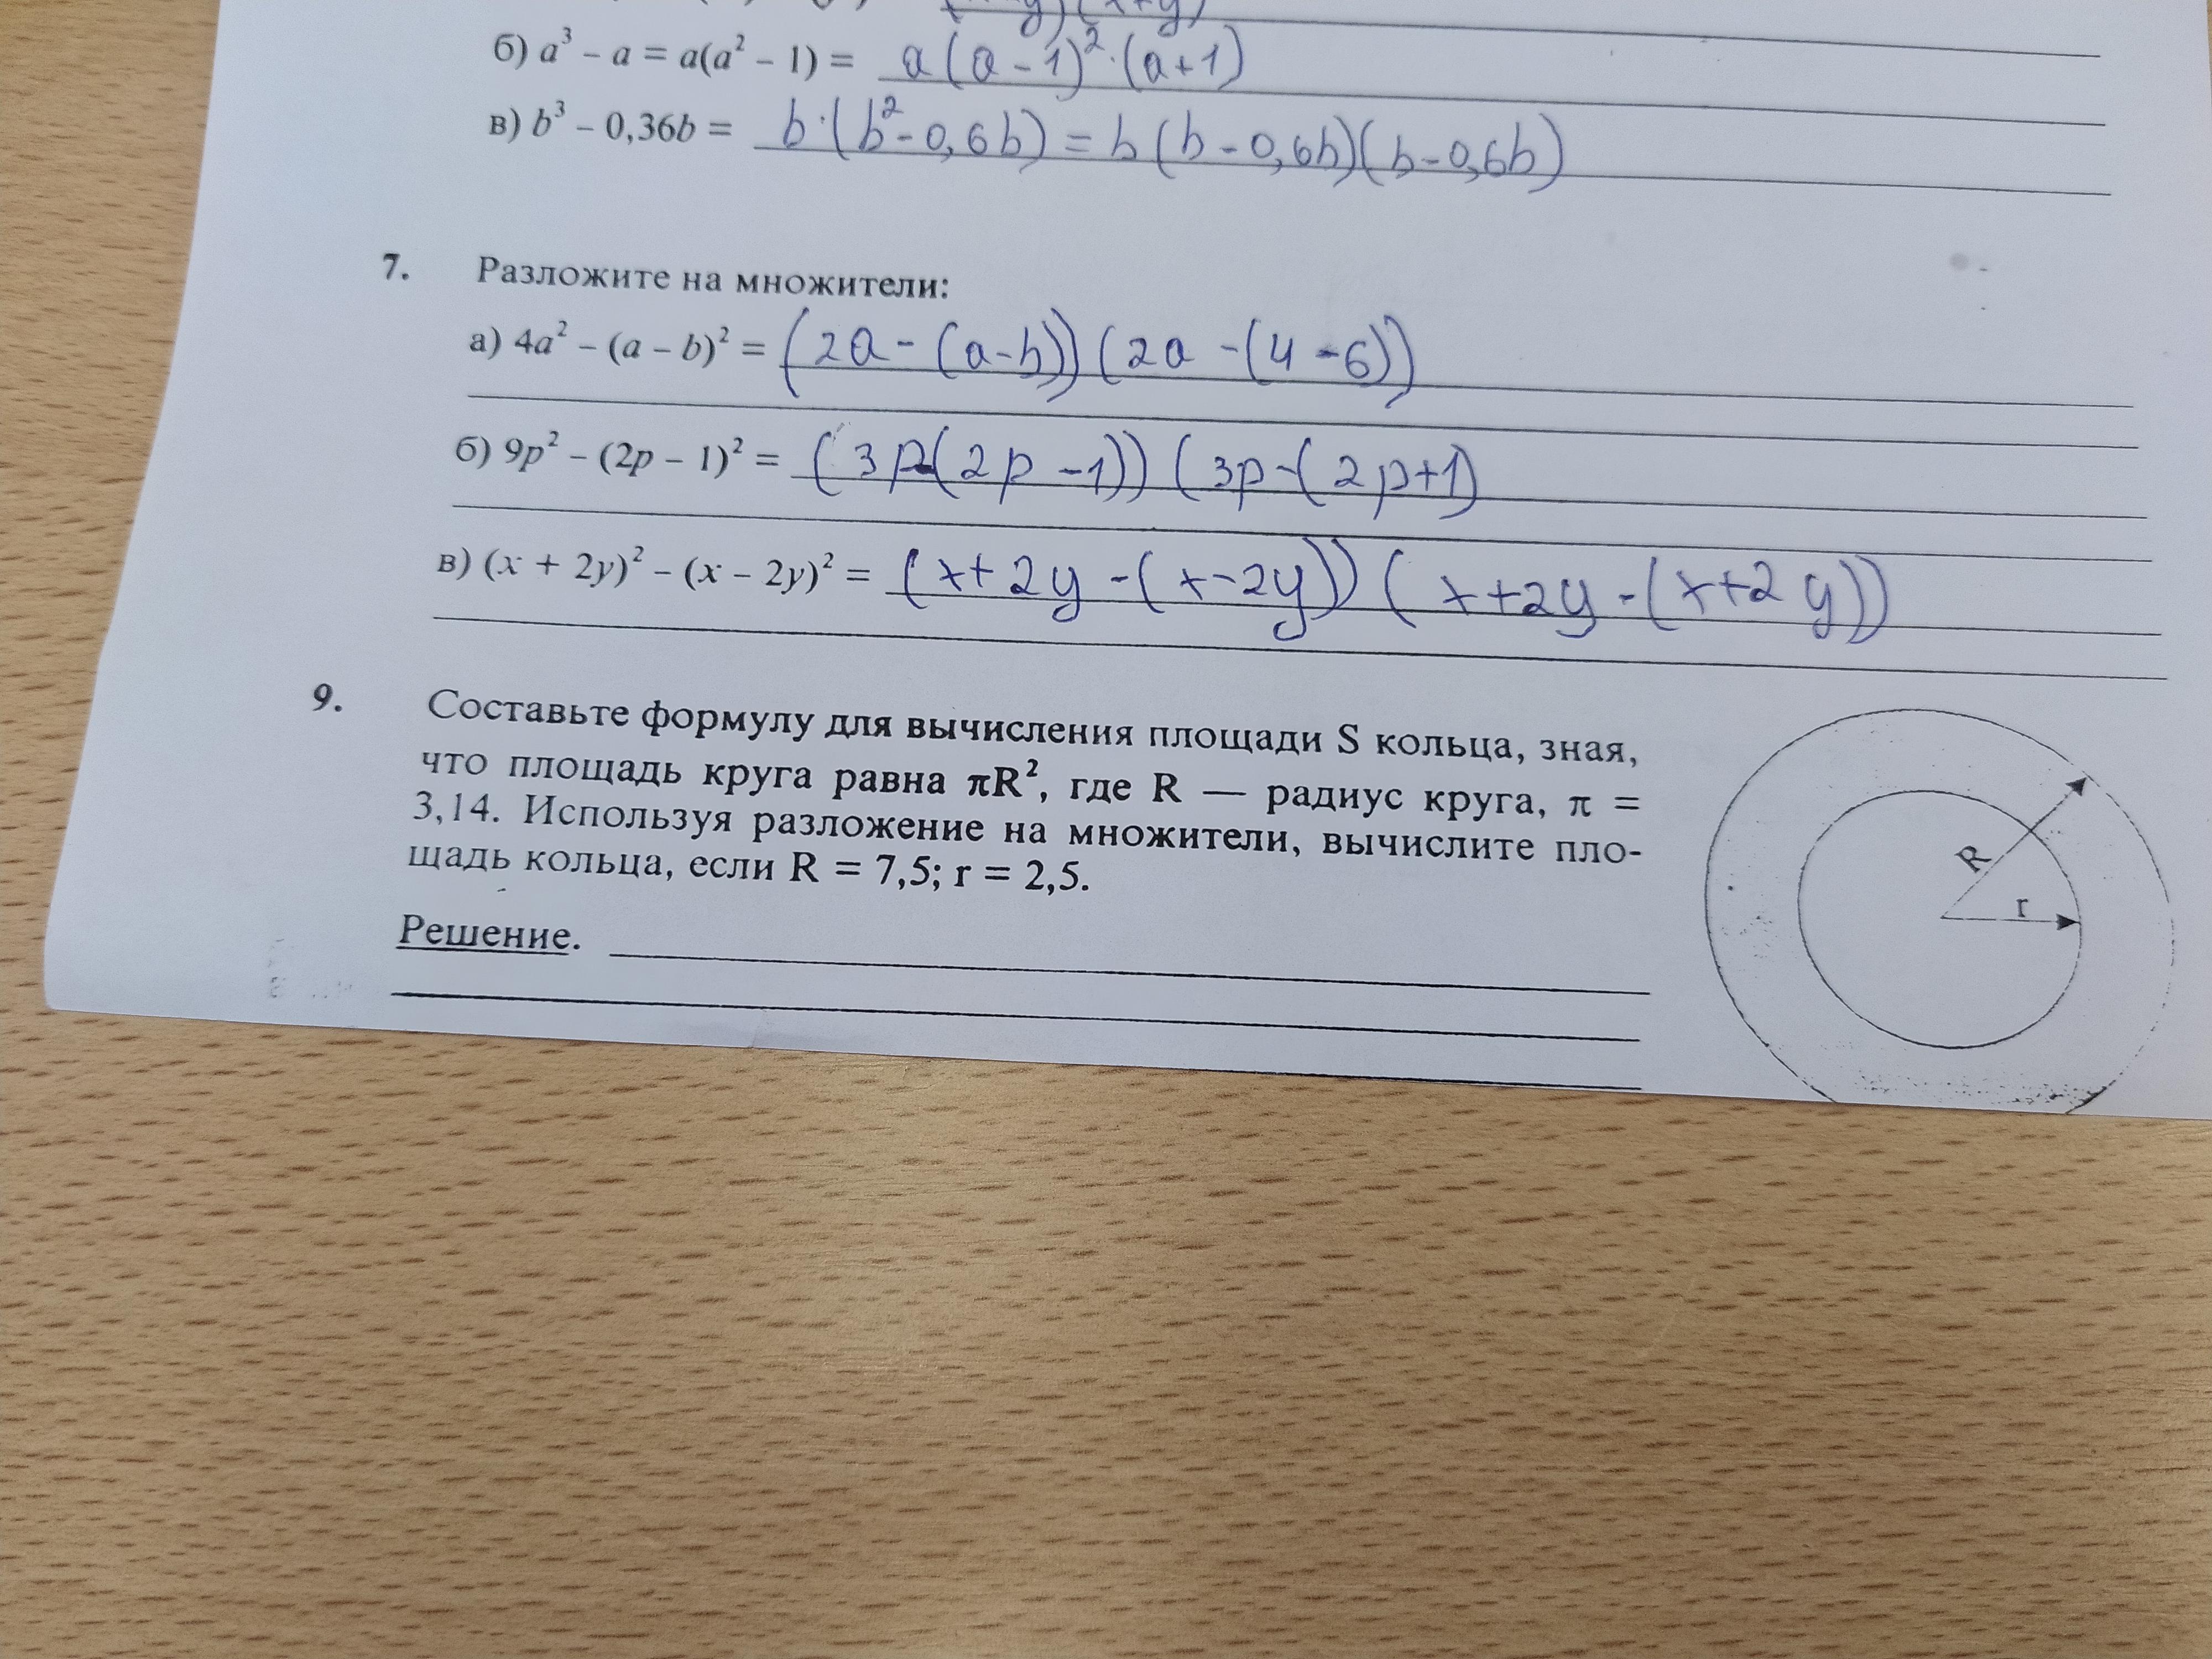 б) a³ – a = a(a² – 1) = a(a-1)²·(a+1)
в) b³ – 0,36b = b·(b²-0,6b) = b(b-0,6b)(b-0,6b)
7. Разложите на множители:
а) 4a² – (a – b)² = (2a-(a-b))(2a-(4-6))
б) 9p² – (2p – 1)² = (3p-(2p-1))(3p-(2p+1)
в) (x + 2y)² – (x – 2y)² = (x+2y-(x-2y))(x+2y-(x+2y))
9. Составьте формулу для вычисления площади S кольца, зная,
что площадь круга равна πR², где R — радиус круга, π =
3,14. Используя разложение на множители, вычислите пло-
щадь кольца, если R = 7,5; r = 2,5.
R
r
Решение.